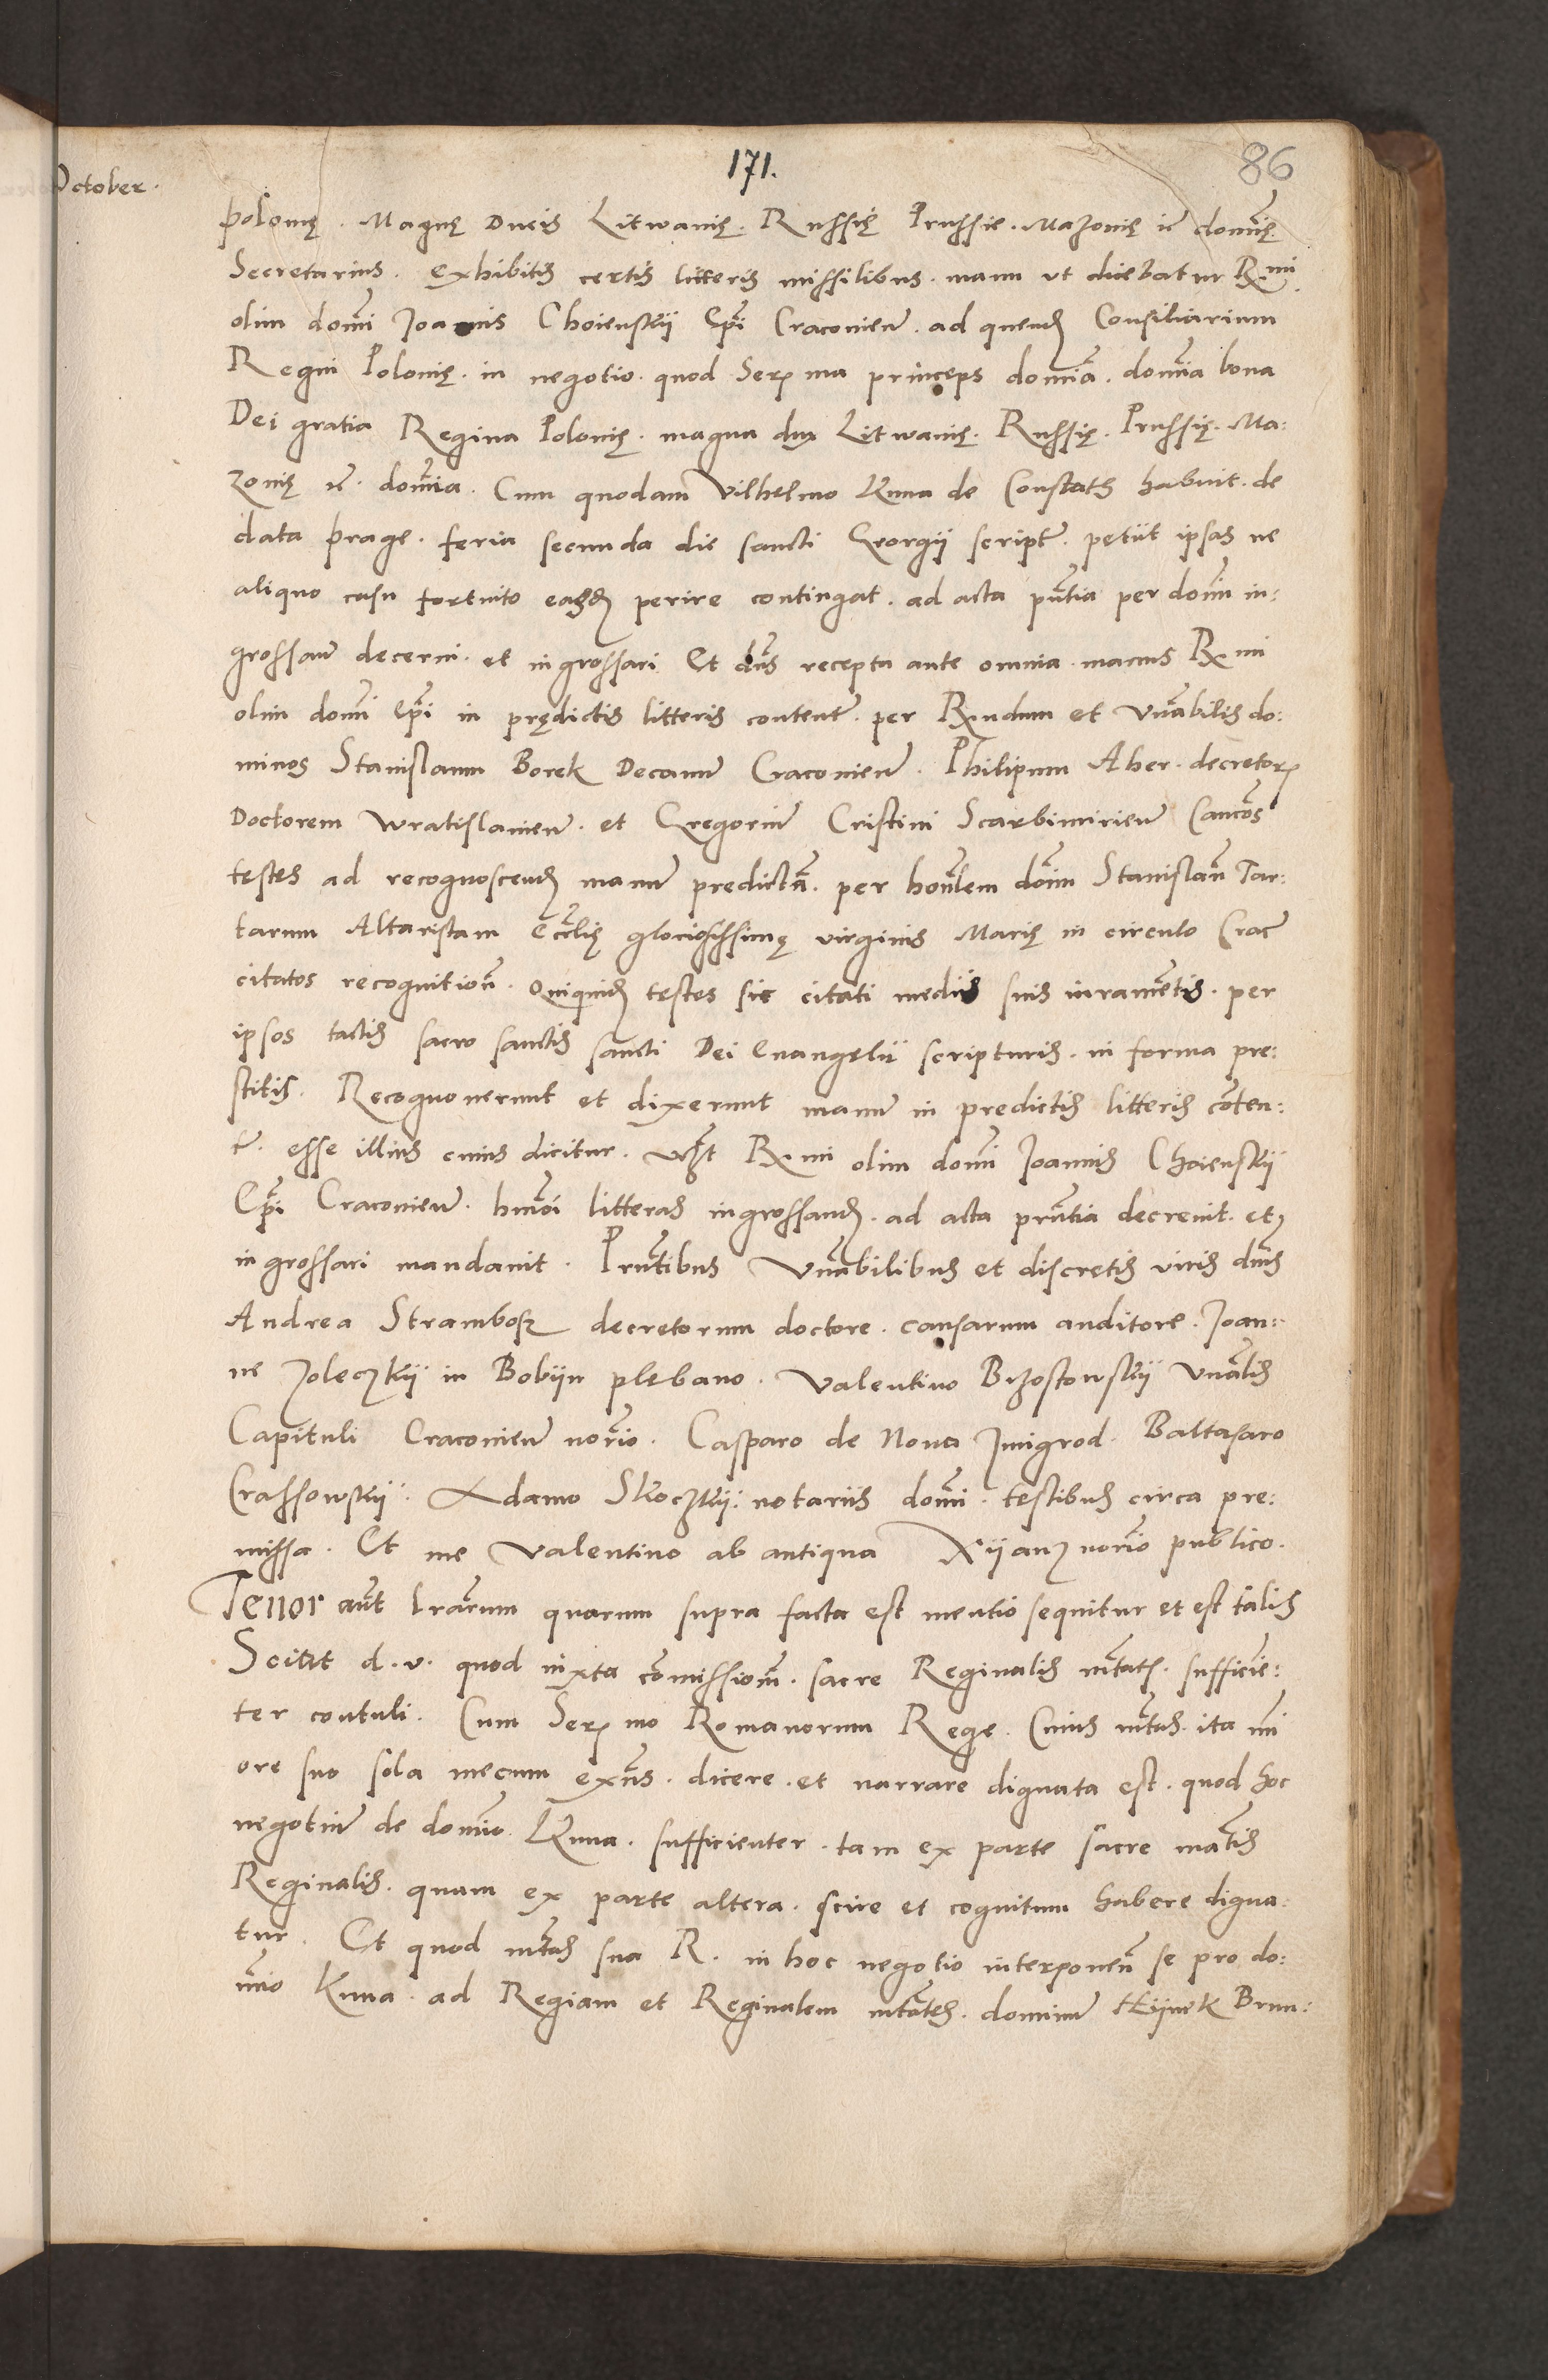 171.
86
October.
polonię. Magnę Ducis Litwanię. Russię Prussie. Mazonię ic̃ domĩę
Secretarius. exhibitis certis litteris missilibus. manu ut dicebatur R.mi
olim domĩ Joannis Choienskÿ Ep̃i Craconieñ. ad quend̃ Consiliarium
Regni Polonię. in negotio. quod Ser. ma princeps domĩa. domĩa bona
Dei gratia Regina Polonię. magna dux Litwanię. Russię. Prussię. Ma:
zonię ic̃. domĩa. Cum quodam Vilhelmo Kuna de Constath habuit. de
data prage. feria secunda die sancti Georgÿ script̃. petiit ipsas ne
aliquo casu fortuito easd̃ perire contingat. ad acta pñtia per domĩ in:
grossañ decerni. et ingrossari Et dñs recepta ante omnia. manus R.mi
olim domĩ Ep̃i in prędictis litteris content̃. per R.ndum et Vñabilis do:
minos Stanislaum Borek Decanũ Craconieñ. Philipum Aber. decretor.
Doctorem Wratislanieñ. et Gregoriũ Cristini Scarbimirieñ Cañcos
testes ad recognoscend̃ manũ predictã. per honlem dom̃ Stanislaũ Tar:
tarum Altaristam Eccl̃ię gloriosissimę virginis Marię in circulo Crac̃
citatos recognitioñ. Quiquid̃ testes sic citati mediis suis iuramẽtis. per
ipsos tactis sacro sanctis sancti Dei Evangelii scripturis. in forma pre:
stitis. Recognoverunt et dixerunt manũ in predictis litteris cõten:
t̃. esse illius cuius dicitur. vz̃t R.mi olim domĩ Joannis Choienskÿ
Ep̃i Craconieñ. hmõi litteras ingrossand̃. ad acta prñtia decrevit. et
ingrossari mandavit. Prñtibus Vñabilibus et discretis viris dñis
Andrea Strambosz decretorum doctore. causarum auditore. Joan:
ne Zoleczkÿ in Bobÿn plebano. Valentino Brzostowskÿ Vñalis
Capituli Craconieñ norĩo. Casparo de Nova Zmigrod. Baltasaro
Crassowskÿ. Adamo Skoczkÿ. notariis domĩ. testibus circa pre:
missa. Et me Valentino ab antiqua Xÿanz norĩo publico.
Tenor aũt lrãrum quarum supra facta est mentio sequitur et est talis
Sciat d. v. quod iuxta cõmissionẽ. sacre Reginalis mtatis. sufficiẽ:
ter contuli. Cum Ser. mo Romanorum Rege. Cuius mtas. ita mi
ore suo sola mecum exñs. dicere. et narrare dignata est. quod hoc
negotiũ de domĩo Kuna. sufficienter. tam ex parte sacre matis
Reginalis. quam ex parte altera. scire et cognitum habere digna
tur. Et quod mtas sua R. in hoc negotio interponeñ se pro do:
mĩo Kuna. ad Regiam et Reginalem mtates. dominũ Hÿnek Brun: